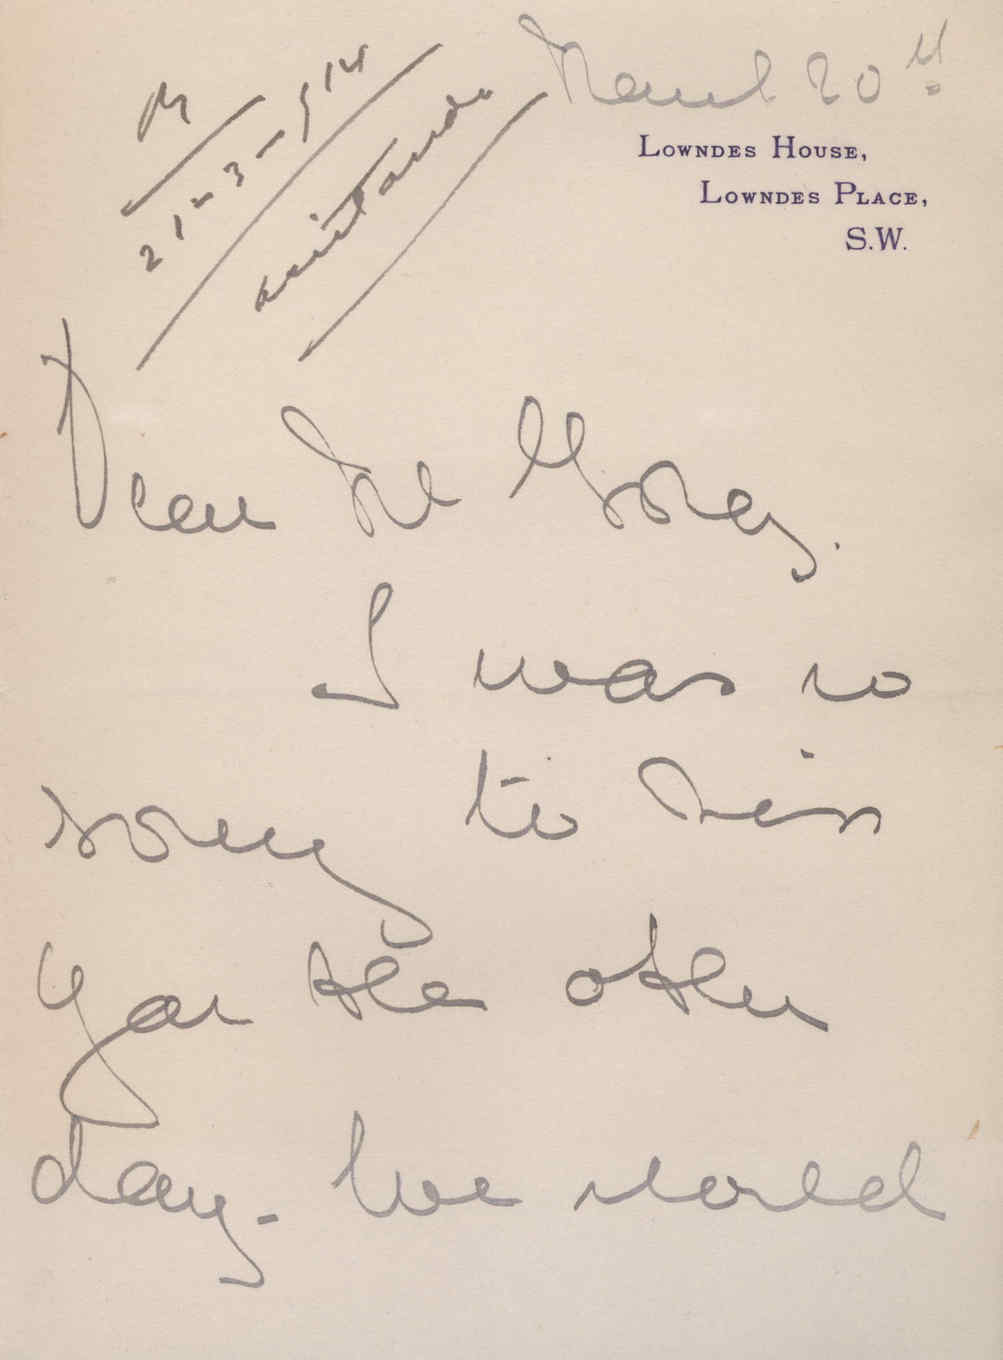 March 20th
M
21-3-914
aceitando
LOWNDES HOUSE,
LOWNDES PLACE,
S.W.
Dear
I was so
sorry to miss
you the other
day - We would